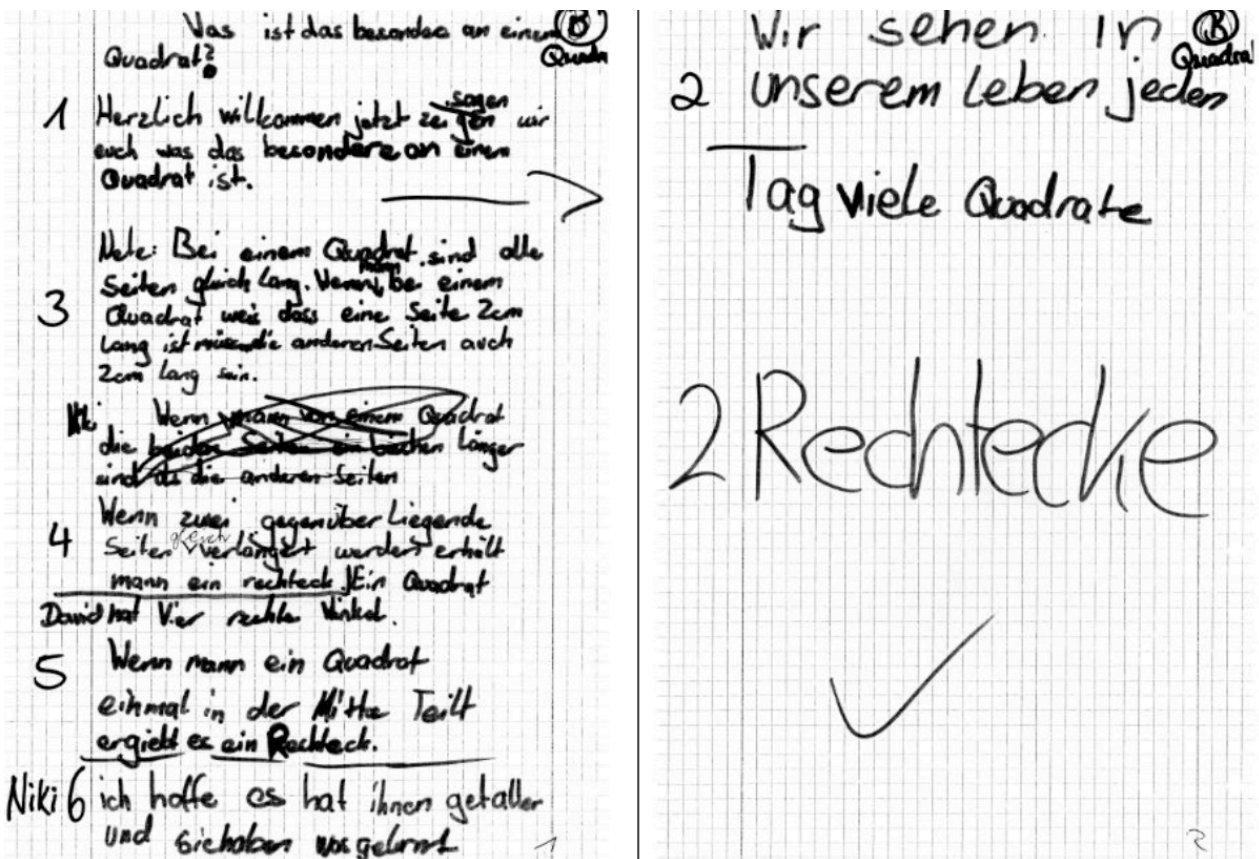 Was ist das besondee an einem B
Quadrat? Quadra
sagen
1 Herzlich willkommen jetzt zeigen wir
euch was das besondere an einem
Quadrat ist.
Nele: Bei einem Quadrat sind alle
mann
Seiten gleich lang. Wenn bei einem
3 Quadrat weis dass eine Seite 2cm
lang ist müssen die anderen Seiten auch
2cm lang sein.
Niki Wenn mann von einem Quadrat
die beiden Seiten ein bischen länger
sind als die anderen Seiten
Wenn zwei gegenüber liegende
gleich
4 Seiten verlängert werden erhält
mann ein rechteck. Ein Quadrat
David hat Vier rechte Winkel.
5 Wenn mann ein Quadrat
einmal in der Mitte Teilt
ergiebt es ein Rechteck.
Niki 6 ich hoffe es hat ihnen gefallen
und sie haben was gelernt
1
Wir sehen in B
Quadra
2 unserem Leben jeden
Tag viele Quadrate
2 Rechtecke
2